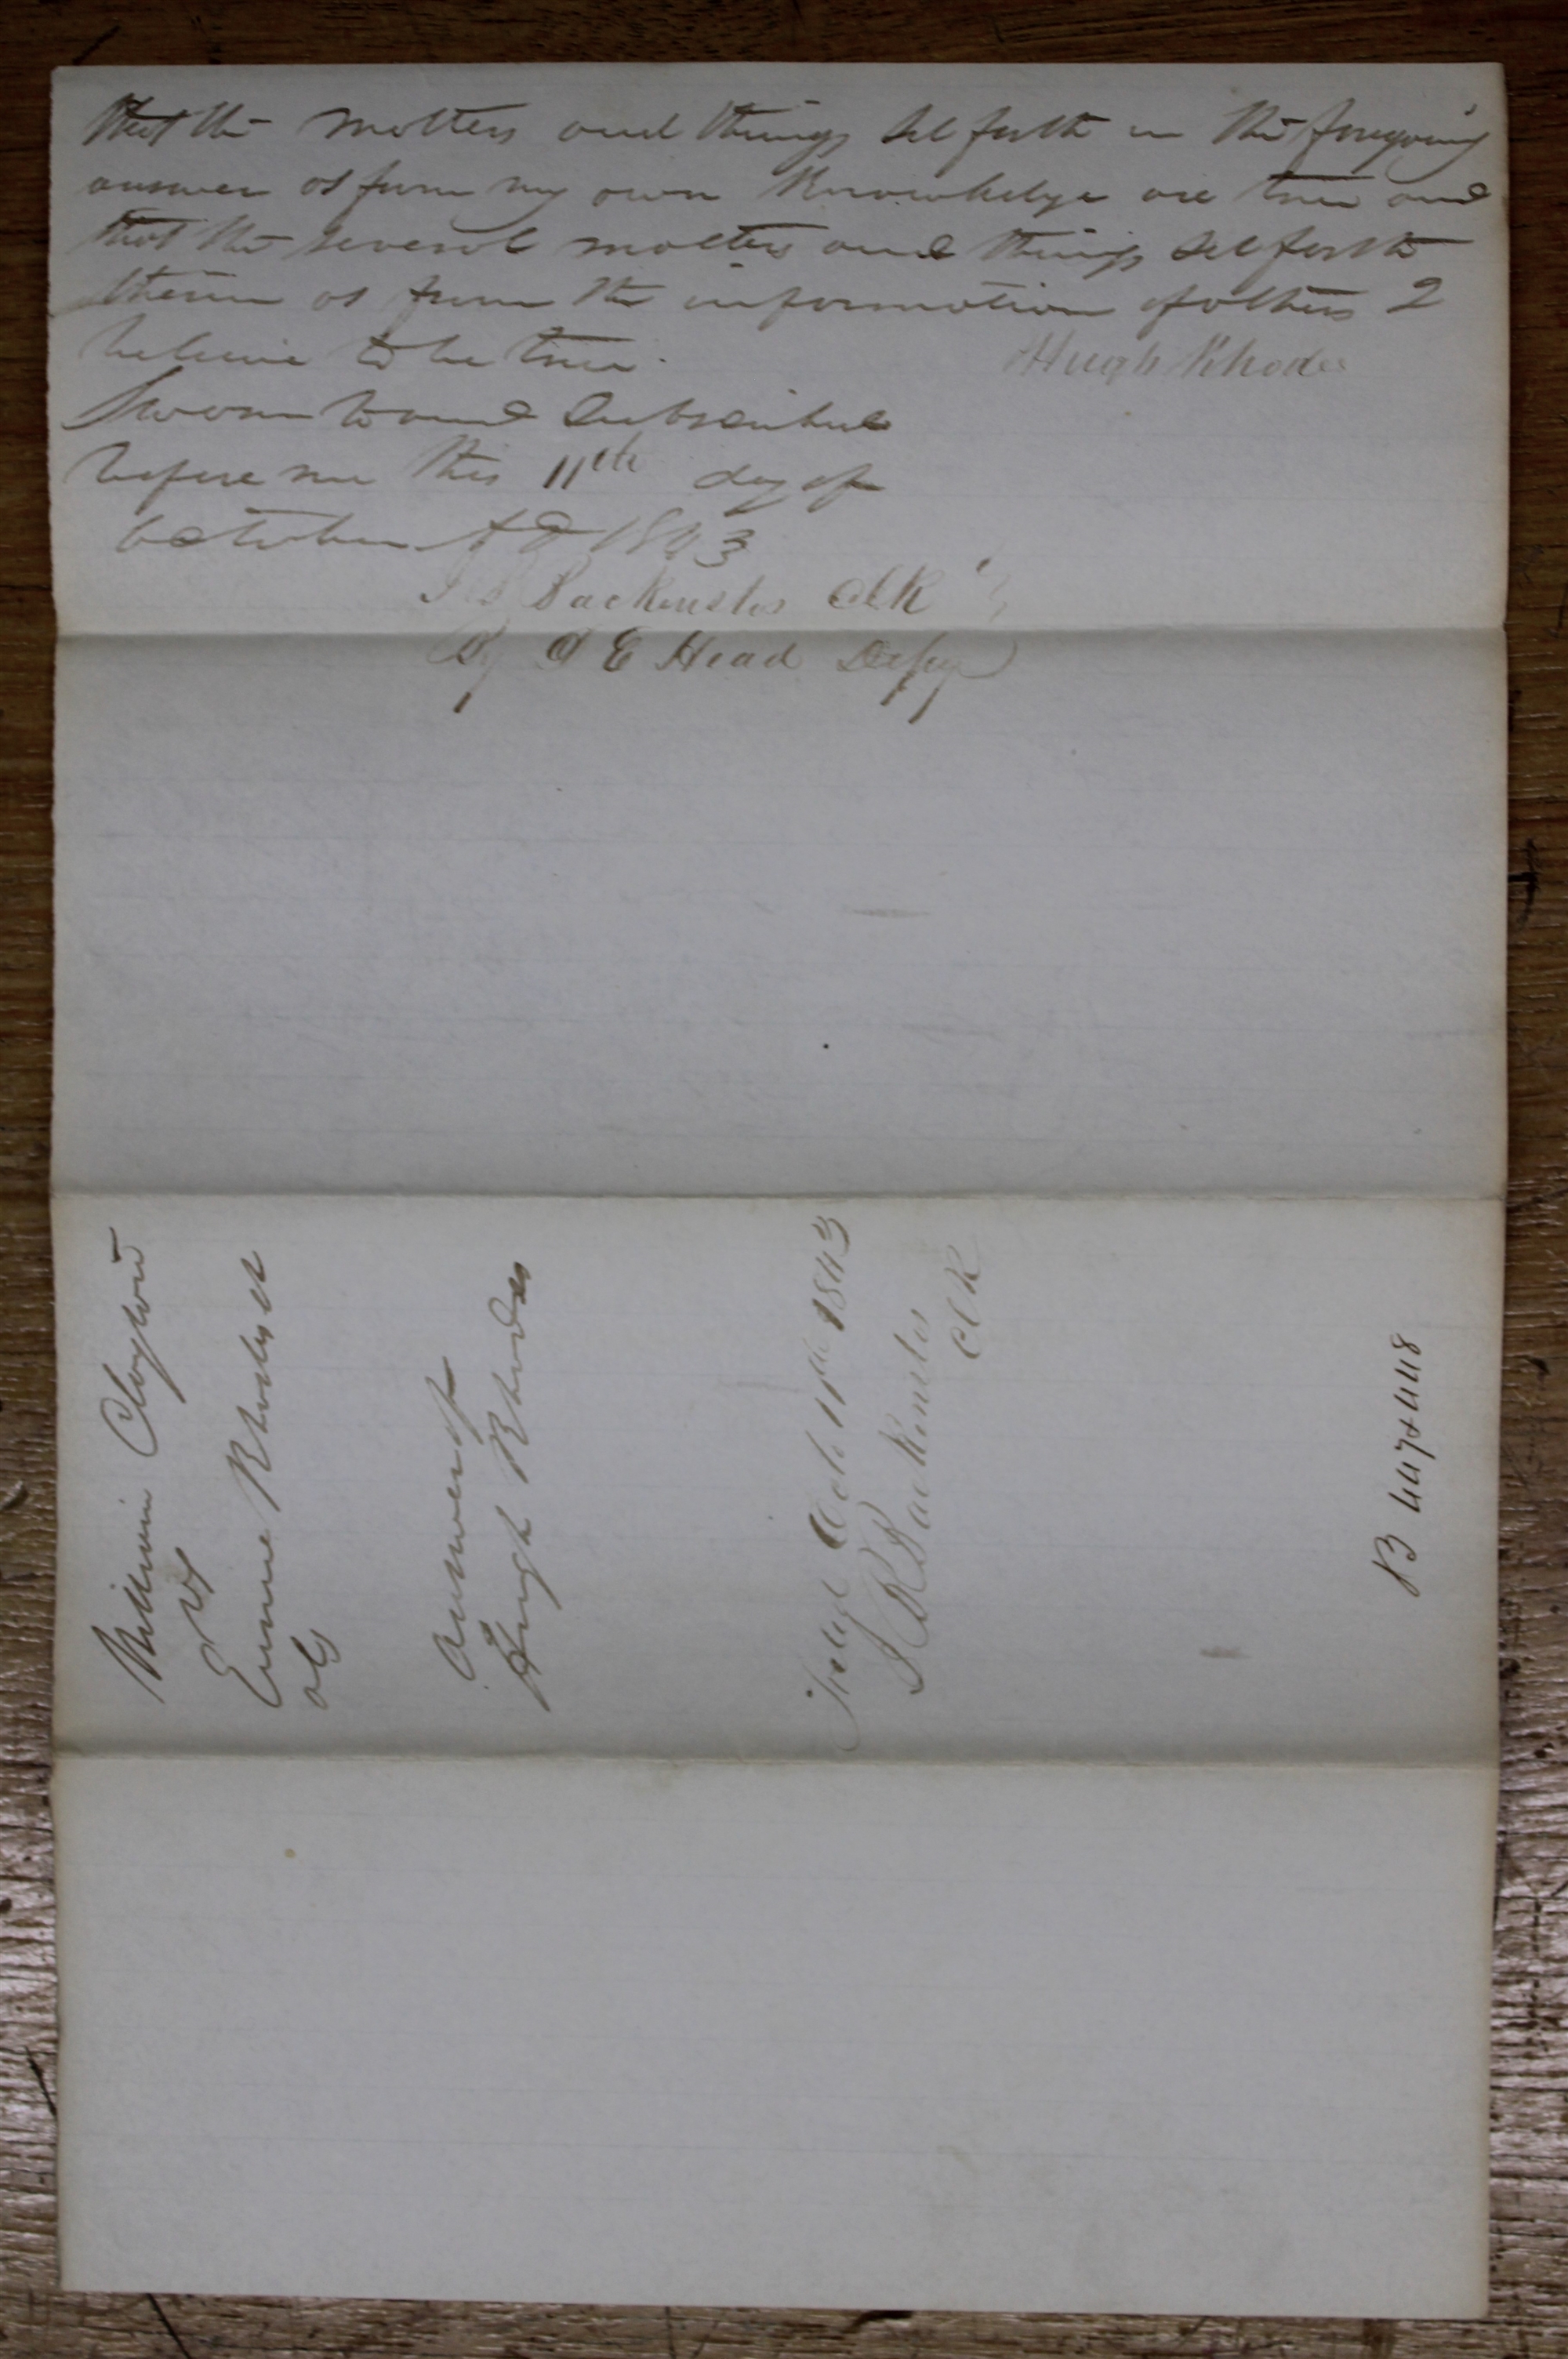 that the matters and things set forth in the foregoing
answer as from my own Knowledge are true and
that the several matters and things set forth
therein as from the information of others I
believe to be true.
Hugh Rhodes
Sworn to and Subscribed
before me this 11th day of
October AD 1843
J B Backenstos Clk
By D E Head Depy
William Clayton
vs
Emme Rhodes et
als
answer of
Hugh Rhodes
Filed Oct. 11th 1843
J B Backenstos
Clk
B 447 & 448